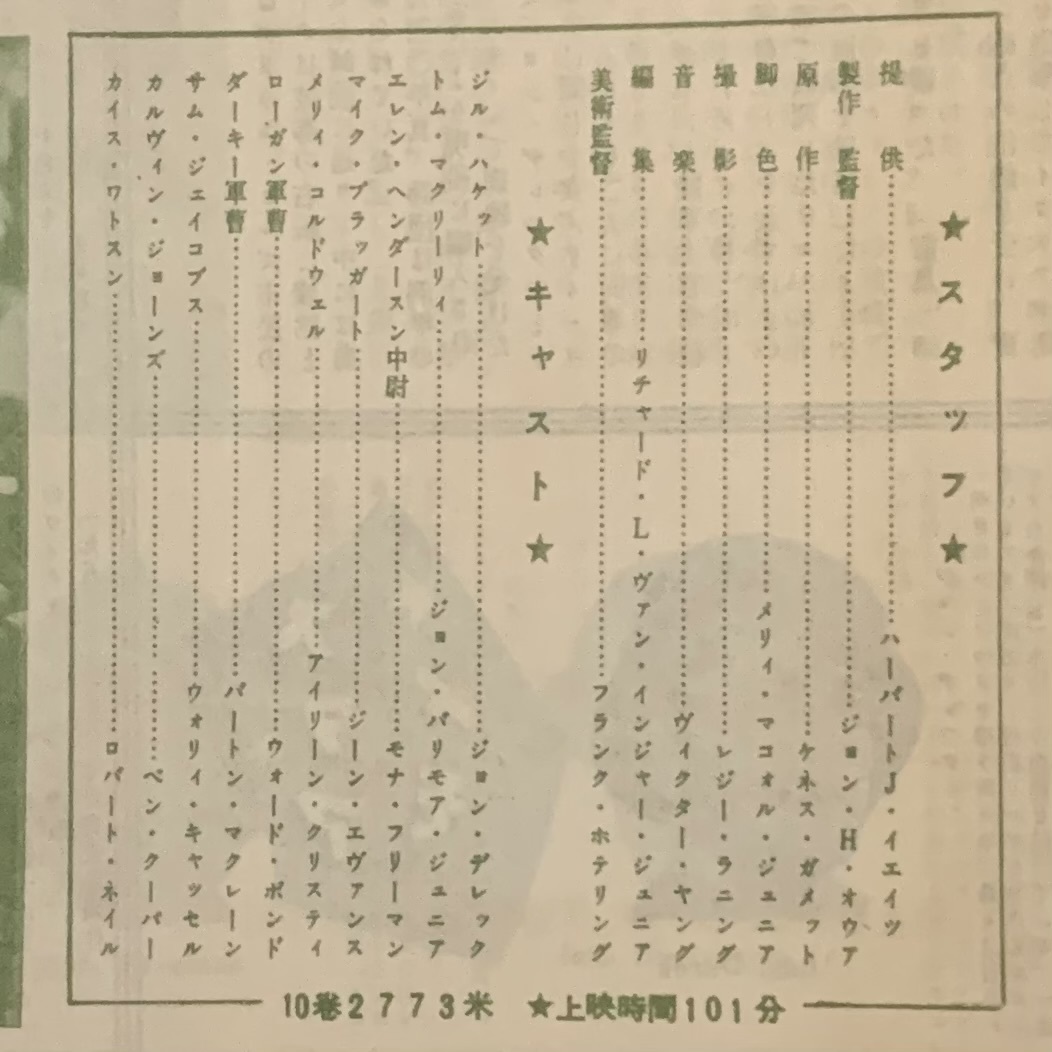 ★スタッフ★
提供……ハーバートJ・イエイツ
製作監督……ジョン・H・オウア
原作……ケネス・ガメット
脚色……メリィ・マコオル・ジュニア
撮影……レジー・ラニング
音楽……ヴィクター・ヤング
編集……リチャード・L・ヴァン・インジャー・ジュニア
美術監督……フランク・ホテリング
★キャスト★
ジル・ハケット……ジョン・デレック
トム・マクリーリィ……ジョン・バリモア・ジュニア
エレン・ヘンダースン中尉……モナ・フリーマン
マイク・ブラッガート……ジーン・エヴァンス
メリィ・コルドウェル……アイリーン・クリスティ
ローガン軍曹……ウォード・ボンド
ダーキー軍曹……バートン・マクレーン
サム・ジェイコブス……ウォリィ・キャッセル
カルヴィン・ジョーンズ……ベン・クーパー
カイス・ワトスン……ロバート・ネイル
10巻2773米 ★上映時間101分